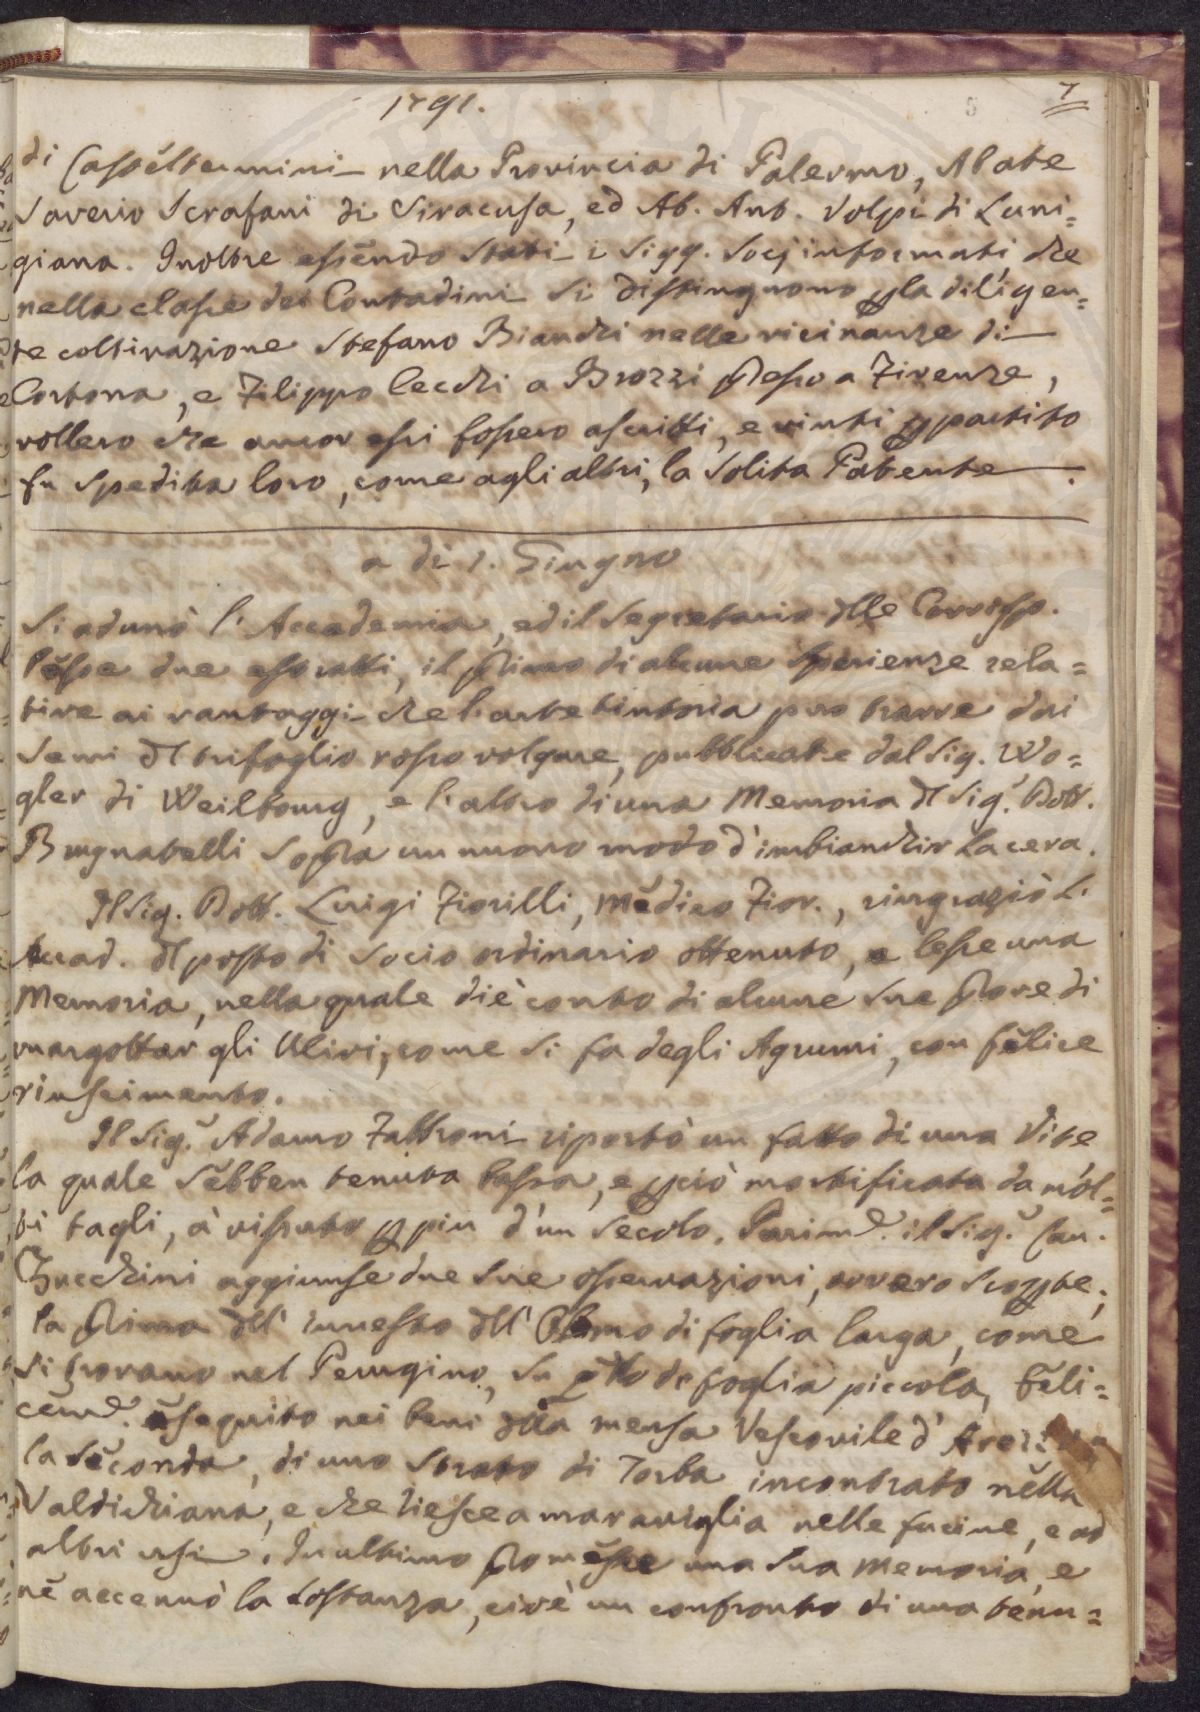 1791.
7
5
di Casteltermini nella Provincia di Palermo, Abate
Saverio Scrafani di Siracusa, ed Ab. Ant. Volpi di Luni=
giana. Inoltre essendo stati i Sigg. Socj informati che
nella classe dei Contadini si distinguono p la diligen=
te coltivazione Stefano Bianchi nelle vicinanze di
Cortona, e Filippo Cecchi a Brozzi presso a Firenze,
vollero che ancor essi fossero ascritti, e vinti p partito
fu spedita loro, come agli altri, la solita Patente.
a di 1. Giugno
Si adunò l'Accademia, ed il Segretario dlle Corrisp.
lesse due estratti, il primo di alcune sperienze rela=
tive ai vantaggi che l'arte tintoria può trarre dai
semi dl trifoglio rosso volgare, pubblicate dal Sig. Wo=
gler di Weilbourg, e l'altro di una Memoria dl Sig.r Dott.
Brugnatelli sopra un nuovo modo d'imbianchir la cera.
Il Sig. Dott. Luigi Fiorilli, Medico Fior., ringraziò l'
Accad. dl posto di Socio ordinario ottenuto, e lesse una
Memoria, nella quale diè conto di alcune sue prove di
margottar gli Ulivi, come si fa degli Agrumi, con felice
riuscimento.
Il Sig.r Adamo Fabbroni riportò un fatto di una Vite
la quale sebben tenuta bassa, e p ciò mortificata da mol=
ti tagli, à vissuto p piu d'un secolo. Parim.e il Sig.r Cav.
Zucchini aggiunse due sue osservazioni, ovvero scoppte;
la prima dll' innesto dll' Olmo di foglia larga, come
si trovano nel Perugino, su qllo di foglia piccola, feli=
cem.e eseguito nei beni dlla mensa Vescovile d'
la seconda, di uno strato di Torba incontrato nella
Valdichiana, e che riesce a maraviglia nelle fucine, e ad
altri usi. In ultimo promesse una sua Memoria, e
ne accennò la sostanza, cioè un confronto di una tenu=